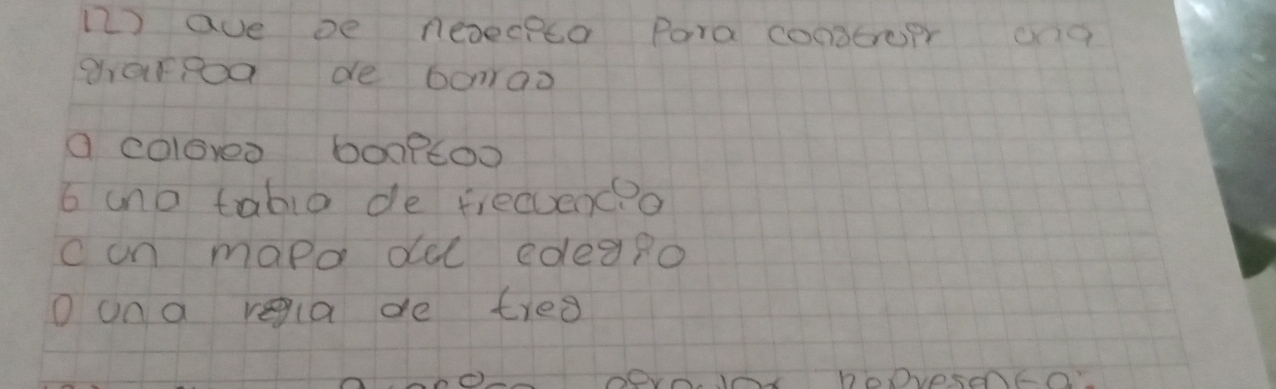 12) que se nesecita Para construir una
grafica de barras
a colores bonitos
b una tabla de frecuencia
c un mapa del colegio
D una regla de tres
representa: